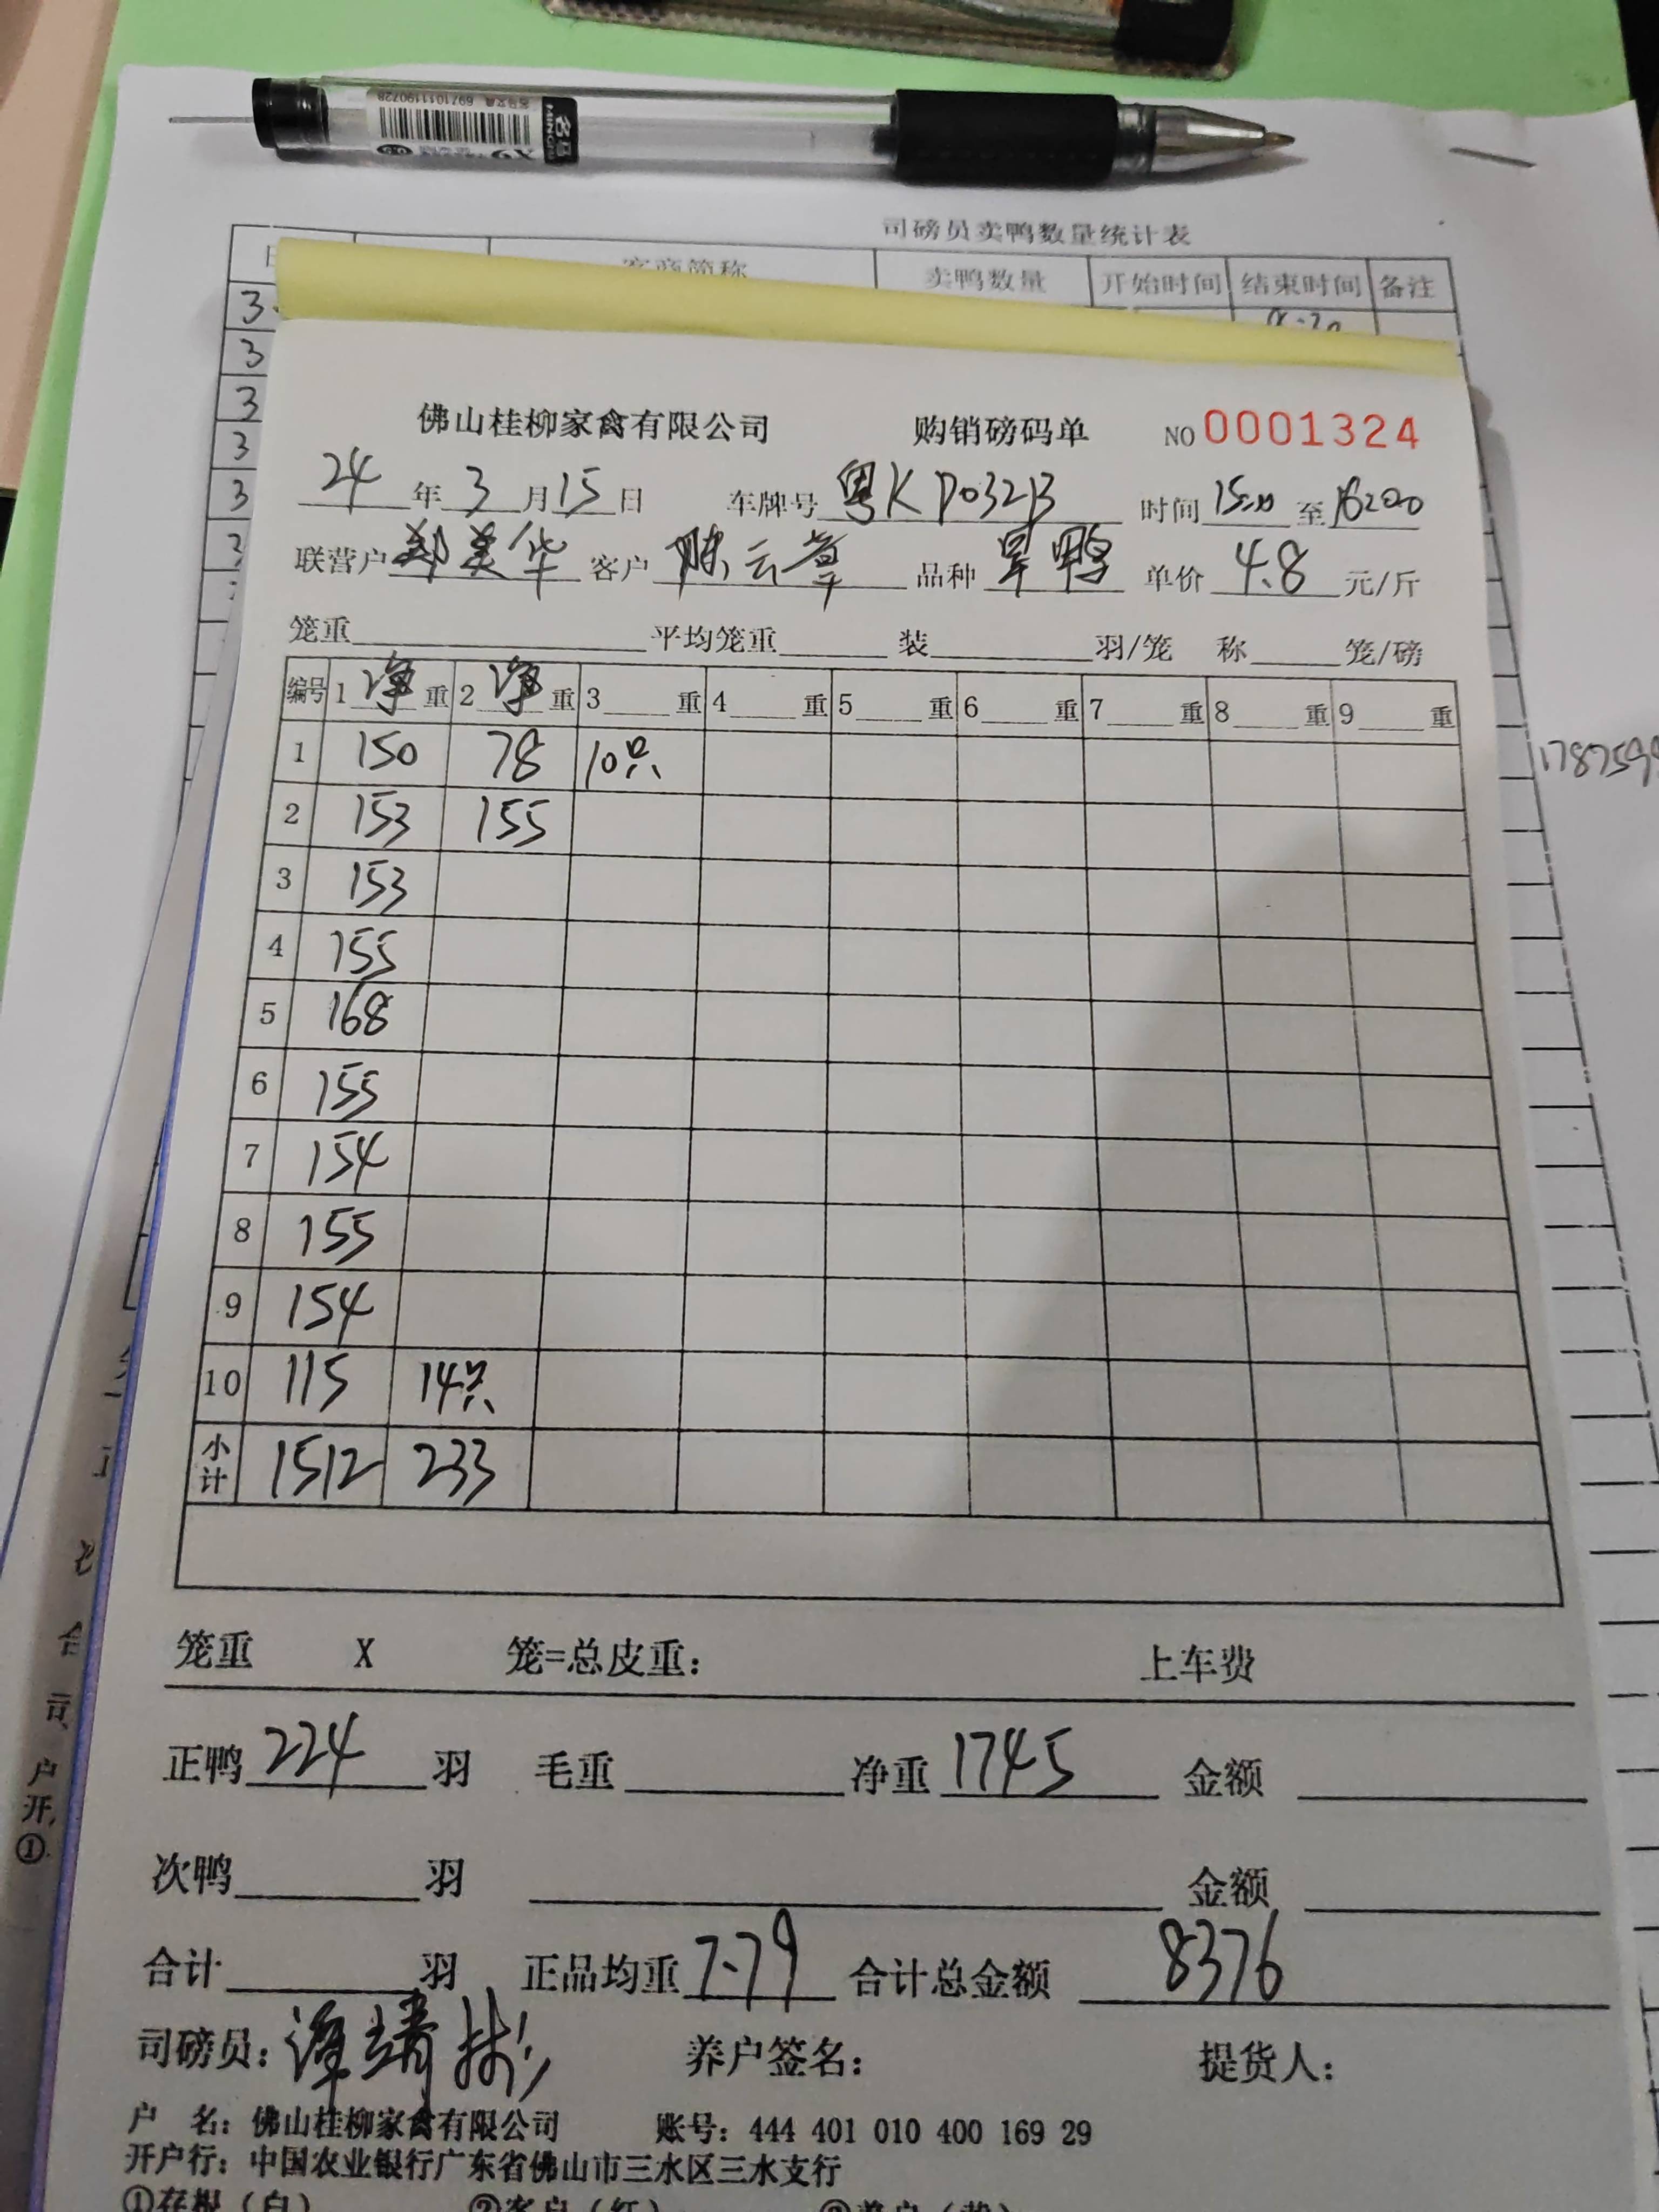 6971011190728
司磅员卖鸭数量统计表
客商简称 卖鸭数量 开始时间 结束时间 备注
佛山桂柳家禽有限公司 购销磅码单 NO 0001324
24 年 3 月 15 日 车牌号 粤K D032B 时间 15:00 至 16:00
联营户 郑美华 客户 陈云章 品种 旱鸭 单价 4.8 元/斤
笼重 平均笼重 装 羽/笼 称 笼/磅
编号 1 净 重 2 净 重 3 重 4 重 5 重 6 重 7 重 8 重 9 重
1 150 78 10只
2 153 155
3 153
4 155
5 168
6 155
7 154
8 155
9 154
10 115 14只
小计 1512 233
笼重 X 笼=总皮重: 上车费
正鸭 224 羽 毛重 净重 1745 金额
次鸭 羽 金额
合计 羽 正品均重 7.79 合计总金额 8376
司磅员: 养户签名: 提货人:
户 名: 佛山桂柳家禽有限公司 账号: 444 401 010 400 169 29
开户行: 中国农业银行广东省佛山市三水区三水支行
①存根(白) ②客户(红) ③养户(黄)